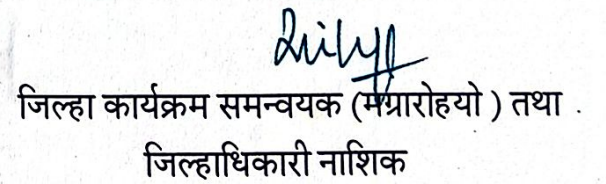 जिल्हा कार्यक्रम समन्वयक (मग्रारोहयो ) तथा .
जिल्हाधिकारी नाशिक